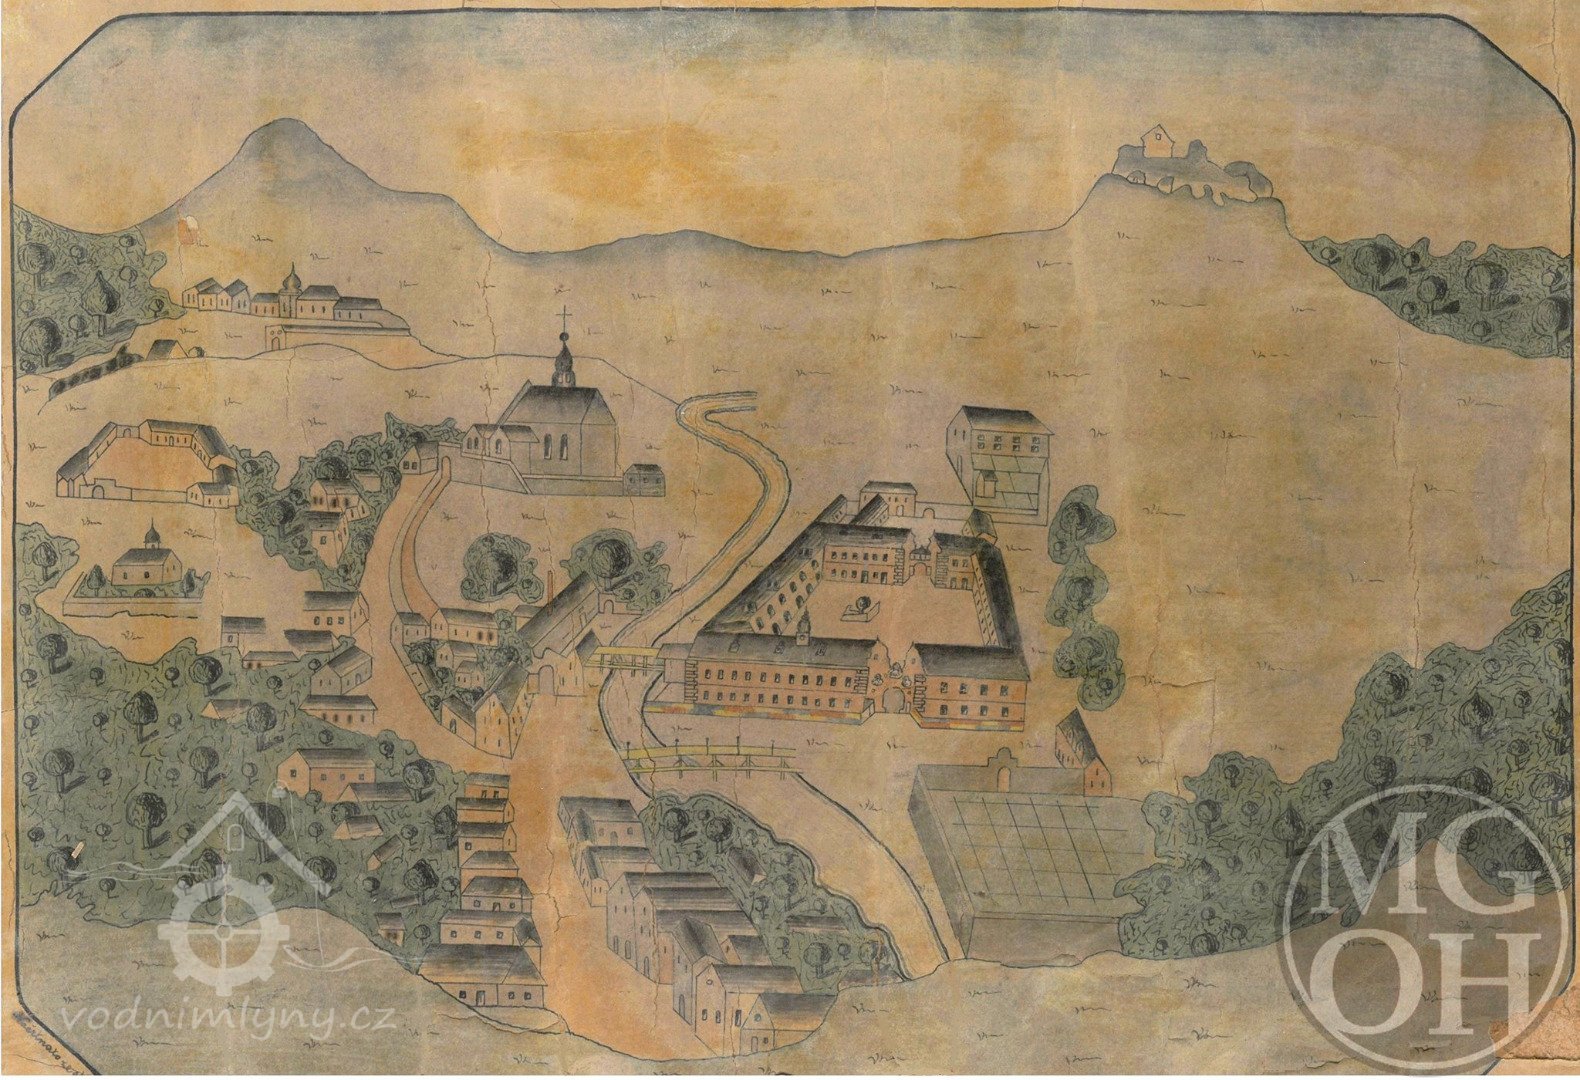 vodnimlyny.cz
MG
OH